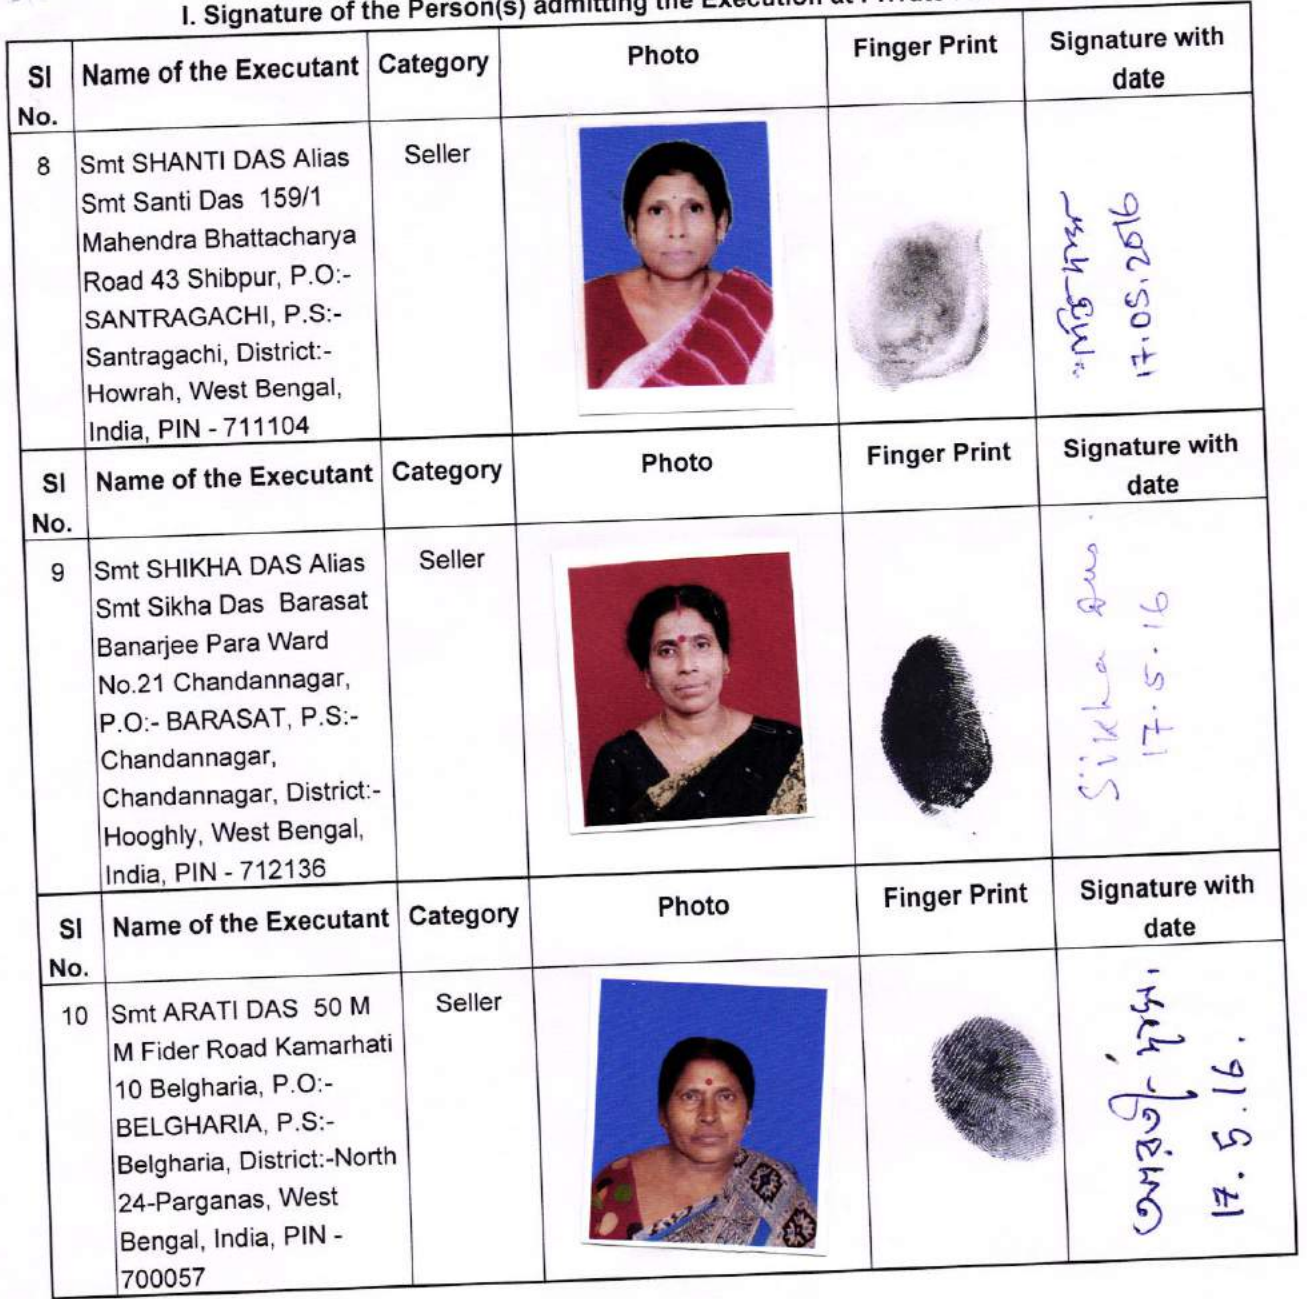 I. Signature of the Person(s) admitting the Execution at
Sl No.
Name of the Executant
Category
Photo
Finger Print
Signature with date
8
Smt SHANTI DAS Alias
Smt Santi Das 159/1
Mahendra Bhattacharya
Road 43 Shibpur, P.O:-
SANTRAGACHI, P.S:-
Santragachi, District:-
Howrah, West Bengal,
India, PIN - 711104
Seller
শান্তি দাস
17.05.2016
Sl No.
Name of the Executant
Category
Photo
Finger Print
Signature with date
9
Smt SHIKHA DAS Alias
Smt Sikha Das Barasat
Banarjee Para Ward
No.21 Chandannagar,
P.O:- BARASAT, P.S:-
Chandannagar,
Chandannagar, District:-
Hooghly, West Bengal,
India, PIN - 712136
Seller
Sikha Das.
17.5.16
Sl No.
Name of the Executant
Category
Photo
Finger Print
Signature with date
10
Smt ARATI DAS 50 M
M Fider Road Kamarhati
10 Belgharia, P.O:-
BELGHARIA, P.S:-
Belgharia, District:-North
24-Parganas, West
Bengal, India, PIN -
700057
Seller
আরতি দাস
17.5.16.